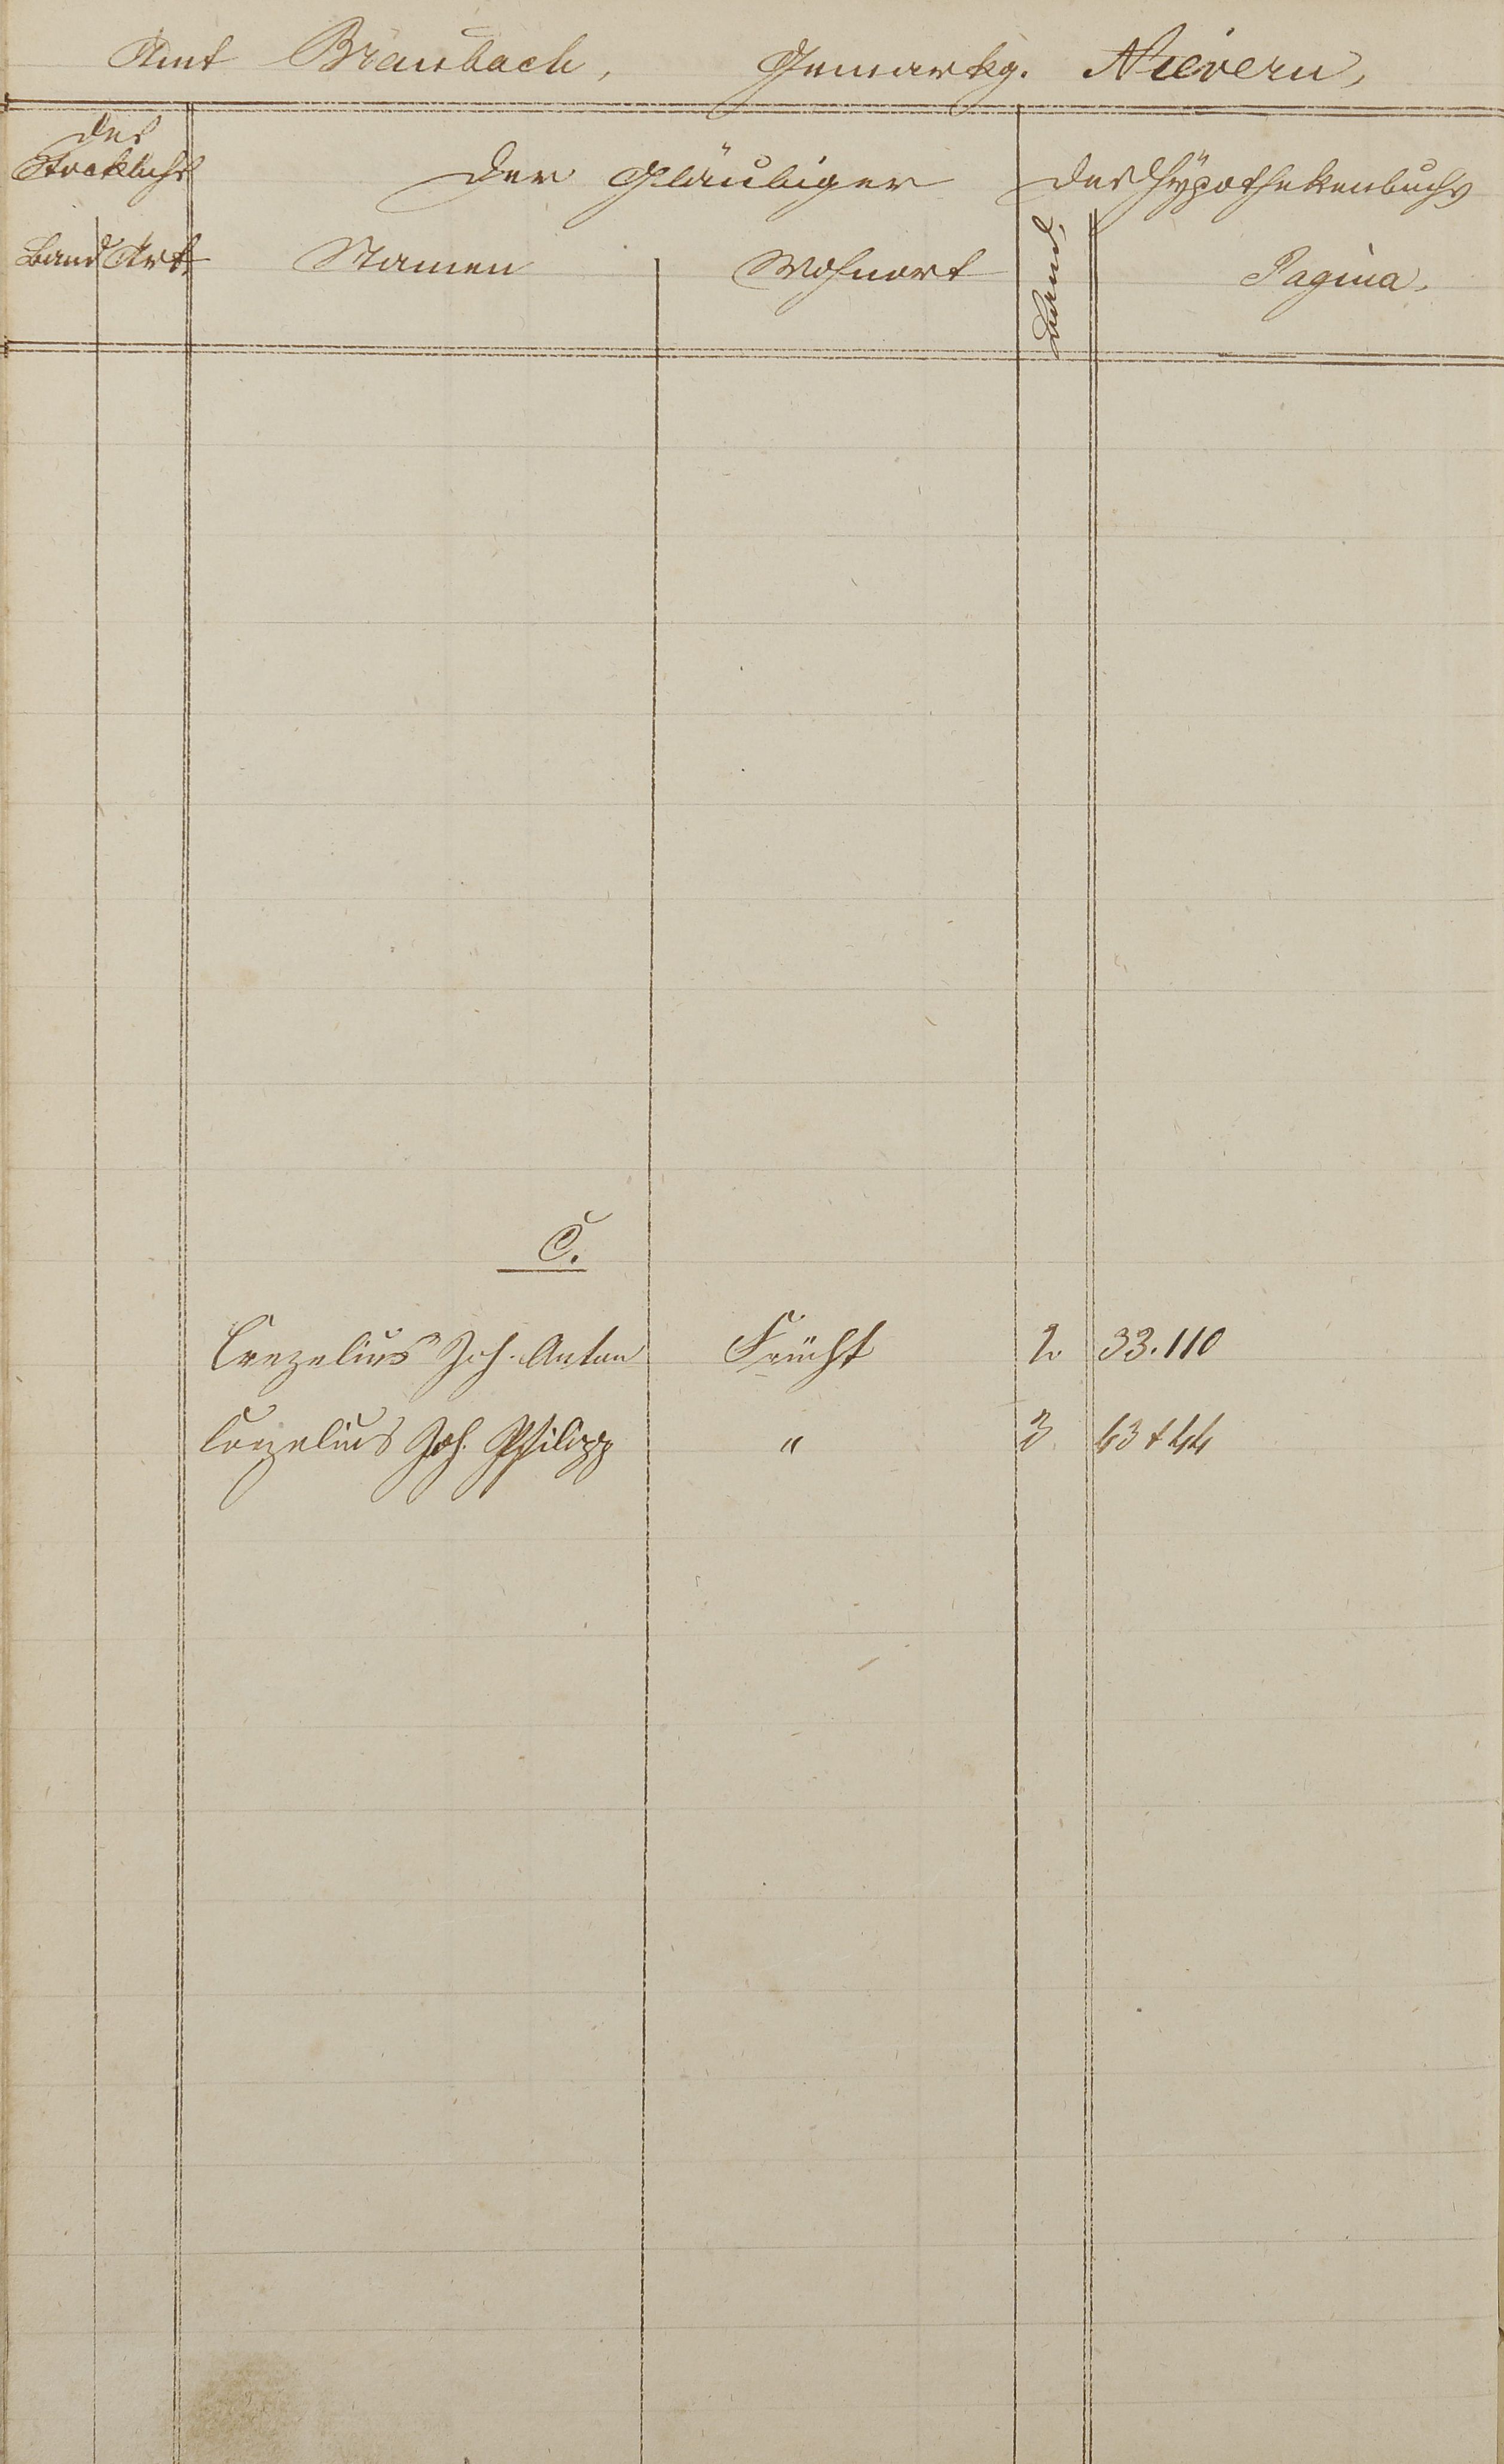 Amt Braubach, Gemarkg. Nievern,
des Stockbuchs
der Gläubiger
des Hypothekenbuchs
Band Art.
Namen
Wohnort
Band,
Pagina.
C.
Crezelius Joh. Anton Frücht 2. 33.110
Crezelius Joh. Philipp " 3 43 + 44